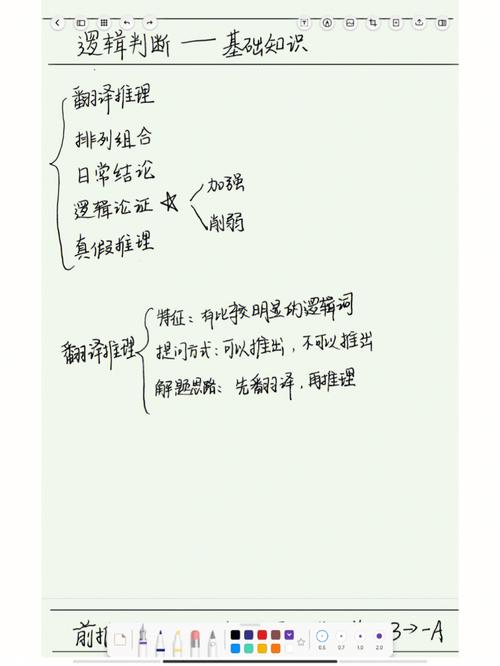 逻辑判断 —— 基础知识
翻译推理
排列组合
日常结论
逻辑论证 ☆
加强
削弱
真假推理
翻译推理
特征：有比较明显的逻辑词
提问方式：可以推出，不可以推出
解题思路：先翻译，再推理
0.5 0.7 1.0 2.0
前 →-A